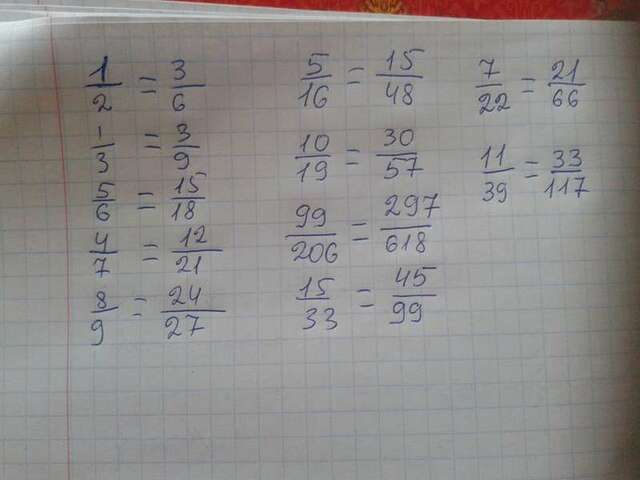 1/2 = 3/6
1/3 = 3/9
5/6 = 15/18
4/7 = 12/21
8/9 = 24/27
5/16 = 15/48
10/19 = 30/57
99/206 = 297/618
15/33 = 45/99
7/22 = 21/66
11/39 = 33/117